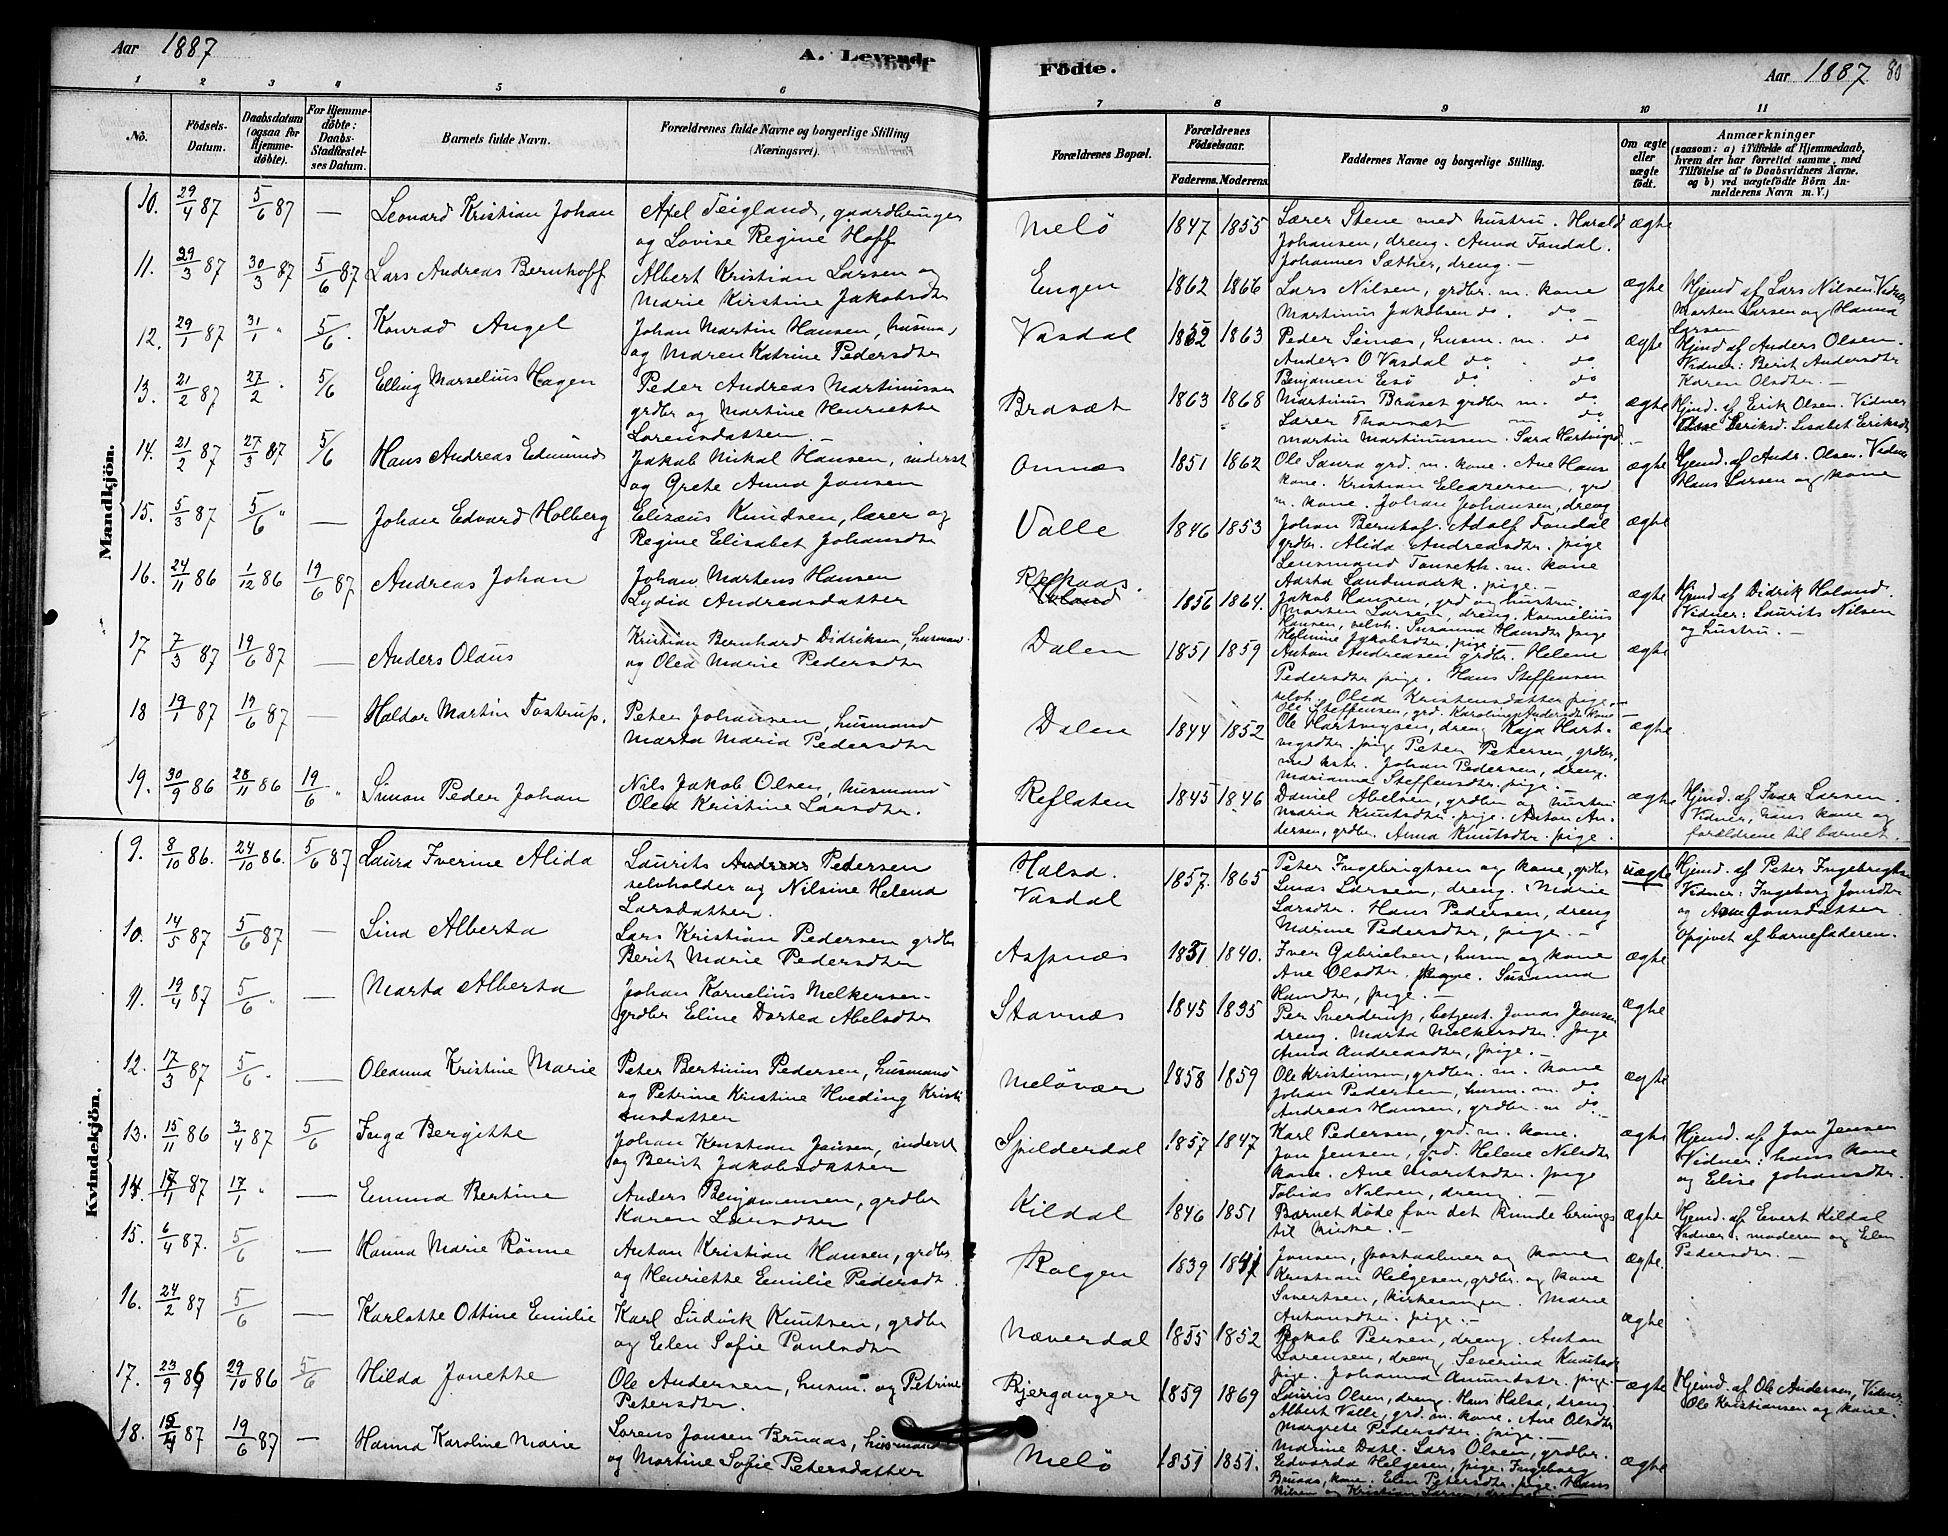 Aar 1887
A. Levende
Födte.
Aar 1887 80
1 2 3 4 5 6
7 8 9 10 11
No.
Födsels-Datum.
Daabsdatum (ogsaa for Hjemme-döbte).
For Hjemme-döbte: Daabs-Stadfæstel-ses Datum.
Barnets fulde Navn.
Forældrenes fulde Navne og borgerlige Stilling (Næringsvei).
Forældrenes Bopæl.
Forældrenes Födselsaar.
Faderens. Moderens.
Faddernes Navne og borgerlige Stilling.
Om ægte eller uægte födt.
Anmærkninger
(saasom: a) i Tilfælde af Hjemmedaab, hvem der har forrettet samme, med Tilföielse af to Daabsvidners Navne. og b) ved uægtefödte Börn An-melderens Navn m. V.)
Mandkjön.
10. 29/4 87 5/6 87 — Leonard Kristian Johan
Axel Teigland, gaardbruger
og Lovise Regine Hoff
Melö 1847 1855
Lærer Stene med hustru. Harald
Johansen, dreng. Anna Fondal.
Johannes Sæther, dreng. —
ægte
11. 29/3 87 30/3 87 5/6 87 Lars Andreas Bernhoff
Albert Kristian Larsen og
Marie Kirstine Jakobsdtr
Engen 1862 1866
Lars Nilsen, grdbr. m. kone
Martinus Jakobsen do. do
ægte
Hjemd af Lars Nilsen. Vidner
Morten Larsen og Hanna
Larsen
12. 29/1 87 31/1 " 5/6. Konrad Angel
Johan Martin Hansen, husmd
og Maren Katrine Pedersdtr
Vasdal 1852 1863
Peder Simæs, husm. m. do
Anders O Vasdal do. do
Benjamen Esö do. do
ægte
Hjmd af Anders Olsen.
Vidner: Berit Andersdtr
Karen Olsdtr. —
13. 21/2 87 27/2 . 5/6 Elling Marselius Hagen
Peder Andreas Martinussen
grdbr og Martine Henriette
Lorensdatter
Brasæt 1863 1868
Martinus Braset grdbr m. do
Lærer m do
Martin Martinussen. Sara Hartvigsd. —
ægte
Hjmd. af Erik Olsen. Vidner
Eriksd. Lisabet Eriksdt
14. 21/2 87 27/3 87 5/6 Hans Andreas Edmund
Jakob Mikal Hansen, inderst
og Grete Anna Jonsen
Onnæs 1851 1862
Ole Saura grd. m. kone. Ane Hans
kone. Kristian Eleazersen, grd
m. kone. Johan Johansen, dreng
ægte
Hjemd. af Andr. Olsen. Vidner
Hans Larsen og kone
15. 5/3 87 5/6 " — Johan Edvard Holberg
Elizæus Knudsen, lærer og
Regine Elisabet Johansdtr
Valle 1846 1853
Johan Bernhof. Adolf Fondal
grdbr. Alida Andreasdtr. pige
Lensmand m. kone
Aasta Landmark. pige. —
ægte
16. 24/11 86 1/12 86 19/6 87 Andreas Johan
Johan Martens Hansen
Lydia Andreasdatter
1856 1864.
Jakob Hansen, grd og hustru.
Morten Larsen, dreng. Kornelius
Hansen, selvh. Susanna Hansdtr pige
Helmine Jakobsdtr. pige. —
ægte
Hjmd af Didrik Holand.
Vidner: Laurits Nilsen
og hustru. —
17 7/3 87 19/6 87 — Anders Olaus
Kristian Bernhard Didriksen, husmand.
og Olea Marie Pedersdtr
Dalen 1851 1859
Anton Andreasen grdbr. Helene
Pedersdtr pige. Hans Steffensen
selvh. Olea Kristensdatter pige. —
ægte
18 19/1 87 19/6 87 — Haldor Martin Tostrup.
Peter Johansen, husmand
Marta Maria Pedersdtr
Dalen 1844 1852
Ole Steffensen, grd. Karoline Andersdtr kone
Ole Hartvigsen, dreng Kaja Hart-
vigsdtr. pige Peter Petersen, grdbr
med kstr. Johan Pedersen, dreng.
Marianna Steffensdtr. pige. —
ægte
19. 30/9 86 28/11 86 19/6 " Simon Peder Johan
Nils Jakob Olsen, husmand
Olea Kristine Larsdtr.
Reflaten 1845 1846
Daniel Abelsen, grdbr og hustru
Maria Knutsdtr. pige. Anton An-
dersen, grdbr. Anna Knutsdtr. pige.
ægte
Hjmd. af Iver Larsen.
Vidner, hans kone og
forældrene til barnet.
Kvindekjön.
9. 8/10 86. 24/10 86. 5/6 87 Laura Iverine Alida
Laurits Andreas Pedersen
selvholder og Nilsine Helena
Larsdatter.
Halsa.
Vasdal 1857. 1865
Peter Ingebrigtsen og kone, grdbr
Linas Larsen, dreng. Marie
Larsdtr. Hans Pedersen, dreng
Marine Pedersdtr, pige. —
uægte
Hjmd. af Peter Ingebregtsn
Vidner: Ingeborg Jonsdtr
og Ane Jonsdatter
Opgivet af barnefaderen.
10. 14/5 87 5/6 87 — Lina Alberta
Lars Kristian Pedersen grdbr
Berit Marie Pedersdtr
Aspnæs 1831 1840.
Iver Gabrielsen, husm og kone
Ane Olsdtr. pige. Susanna
Hansdtr, pige. —
ægte
9. 19/4 87 5/6. — Marta Alberta
Johan Kornelius Melkersen.
grdbr Eline Dortea Abelsdtr
Stavnæs 1845 1835
Per Sverdrup, betjent. Jonas Jonsen
dreng. Marta Melkersdtr. pige
Anna Andreasdtr, pige. —
ægte
12. 17/3 87 5/6. — Oleanna Kristine Marie
Peter Bertinus Pedersen, husmand
og Petrine Kristine Hveding Kristi
ansdatter
Melövær 1858 1859
Ole Kristensen, grdbr. m. kone
Johan Pedersen, husm. m. do
Andreas Hansen, grdbr. m do..
ægte
13. 15/11 86 3/4 87 5/6 Inga Bergitte
Johan Kristian Jansen, inderst
og Berit Jakobsdatter
Spilderdal 1857 1847
Karl Pedersen, grd. m. kone.
Jon Jensen, grd. Helene Nilsdtr
kone. Ane Maritsdtr. pige
Tobias Nilsen, dreng. —
ægte
Hjemd. af Jon Jensen
Vidner: hans kone
og Elise Johansdtr.
14. 17/1 87 17/1 " — Emma Bertine
Anders Benjamensen, grdbr
Karen Larsdtr
Kildal 1846 1851
Barnet döde før det kunde bringes
til kirke. —
ægte
Hjemd. af Evert Kildal
Vidner: moderen og Elen
Pedersdtr. —
15. 6/4 87. 5/6 — Hanna Marie Rönne
Anton Kristian Hansen, grdbr
og Henriette Emilie Pedersdt.
Bolgen 1839 1841
Jonsen, postaabner og kone
Kristian Helgesen, grdbr. og kone
Sivertsen, kirkesanger. Marie
Antonsdtr. pige. —
ægte.
16. 24/2 87 5/6 — Karlotte Ottine Emilie
Karl Ludvik Knutsen, grdbr
og Elen Sofie Paulsdtr
Næverdal 1855 1852
Jakob Persen, dreng. Anton
Sörensen, dreng Severina Knutsdt
pige. Johanna Amundsdtr. pige. —
ægte
17. 23/9 86 29/10 86 5/6 Hilda Jonette
Ole Andersen, husm. og Petrine
Petersdtr.
Bjerganger 1859 1869
Lauris Olsen, dreng. Hans Halsa, dreng.
Albert Valle, grd. m. kone. Ane Olsdtr
Margrete Pedersdtr. pige. —
ægte
Hjemd. af Ole Andersen, Vidner:
Ole Kristiansen og kone.
18. 15/4 87 19/6 87 — Hanna Karoline Marie
Sörens Jonsen Bruaas, husmand
og Martine Sofie Petersdatter
Melö 1851 1851.
Marine Dahl. Lars Olsen, grdbr.
Edvarda Helgesen, pige. Ingeborg
Bruaas, kone. Elen Petersdtr. pige. Hans
Nilsen og Kristian Larsen, drenge. —
ægte